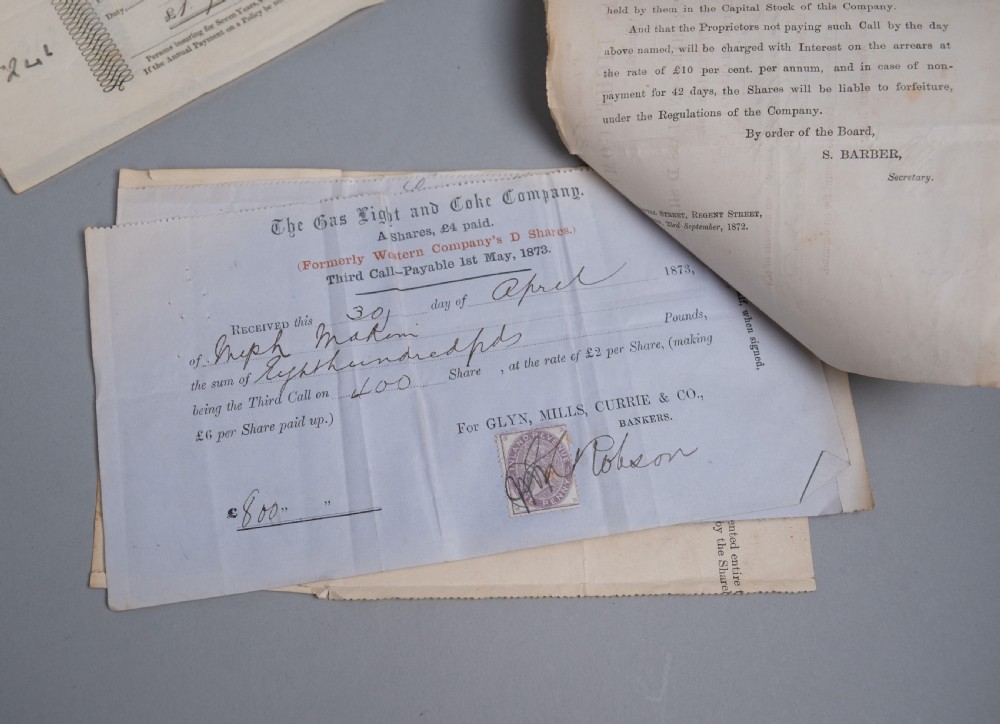 £1
Duty
Persons insuring for Seven Years,
If the Annual Payment on a Policy be
held by them in the Capital Stock of this Company.
And that the Proprietors not paying such Call by the day
above named, will be charged with Interest on the arrears at
the rate of £10 per cent. per annum, and in case of non-
payment for 42 days, the Shares will be liable to forfeiture,
under the Regulations of the Company.
By order of the Board,
S. BARBER,
Secretary.
STREET, REGENT STREET,
September, 1872.
when signed.
The Gas Light and Coke Company.
A SHARES, £4 paid.
(Formerly Western Company's D Shares.)
Third Call—Payable 1st May, 1873.
RECEIVED this 30 day of April 1873,
of Makin
the sum of Eight hundred pds Pounds,
being the Third Call on 400 Share , at the rate of £2 per Share, (making
£6 per Share paid up.)
For GLYN, MILLS, CURRIE & CO.,
BANKERS.
INLAND REVENUE
PENNY
Robson
£800 " "
ented entire
by the Share